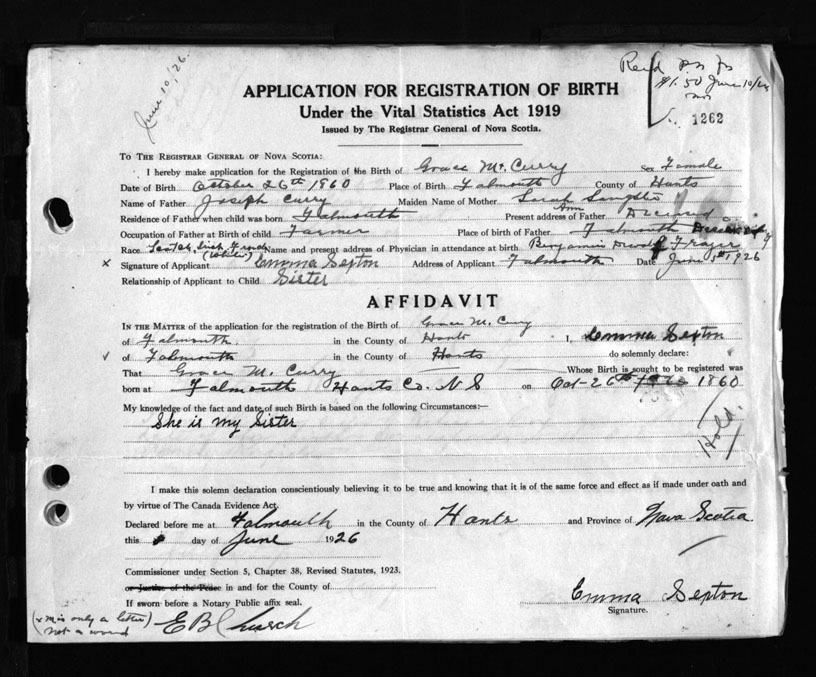 June 10/26.
$1.50 June 10/26
1262
APPLICATION FOR REGISTRATION OF BIRTH
Under the Vital Statistics Act 1919
Issued by The Registrar General of Nova Scotia.
TO THE REGISTRAR GENERAL OF NOVA SCOTIA:
I hereby make application for the Registration of the Birth of Grace M. Curry Sex Female
Date of Birth October 26th 1860 Place of Birth Falmouth County of Hants
Name of Father Joseph Curry Maiden Name of Mother Sarah Ann
Residence of Father when child was born Falmouth Present address of Father Deceased
Occupation of Father at Birth of child Farmer Place of birth of Father Falmouth
Race Scotch, Irish, French (White) Name and present address of Physician in attendance at birth Benjamin Frazer
x Signature of Applicant Emma Sexton Address of Applicant Falmouth Date June 1926
Relationship of Applicant to Child Sister
AFFIDAVIT
IN THE MATTER of the application for the registration of the Birth of Grace M. Curry
of Falmouth in the County of Hants I, Emma Sexton
√ of Falmouth in the County of Hants do solemnly declare:
That Grace M. Curry Whose Birth is sought to be registered was
born at Falmouth Hants Co. N S on Oct-26th 1860
My knowledge of the fact and date of such Birth is based on the following Circumstances:—
She is my Sister
Hold.
I make this solemn declaration conscientiously believing it to be true and knowing that it is of the same force and effect as if made under oath and
by virtue of The Canada Evidence Act.
Declared before me at Falmouth in the County of Hants and Province of Nova Scotia
this day of June 1926
Commissioner under Section 5, Chapter 38, Revised Statutes, 1923.
or Justice of the Peace in and for the County of
If sworn before a Notary Public affix seal.
Emma Sexton
Signature.
(x M is only a letter
not a word)
E B Church